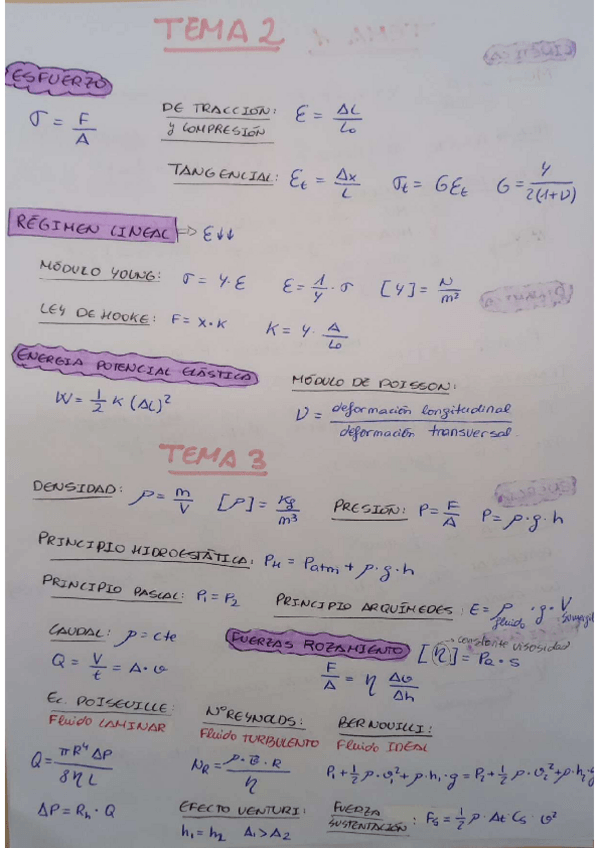 TEMA 2
ESFUERZO
σ = F/A
DE TRACCIÓN: y COMPRESIÓN ε = ΔL/L₀
TANGENCIAL: εt = Δx/L σt = Gεt G = Y/2(1+ν)
RÉGIMEN LINEAL => ε↓↓
MÓDULO YOUNG: σ = Y·ε ε = 1/Y · σ [Y] = N/m²
LEY DE HOOKE: F = x·K K = Y · A/L₀
ENERGIA POTENCIAL ELÁSTICA
W = 1/2 K (ΔL)²
MÓDULO DE POISSON:
ν = deformación longitudinal / deformación transversal.
TEMA 3
DENSIDAD: ρ = m/V [ρ] = Kg/m³ PRESIÓN: P = F/A P = ρ·g·h
PRINCIPIO HIDROESTÁTICA: PH = Patm + ρ·g·h
PRINCIPIO PASCAL: P₁ = P₂ PRINCIPIO ARQUÍMEDES: E = ρ fluido · g · V
CAUDAL: ρ = cte
Q = V/t = A·v
FUERZAS ROZAMIENTO [η] = Pa·s → constante visosidad
F/A = η Δv/Δh
Ec. POISEVILLE: Nº REYNOLDS: BERNOUILLI:
Fluido LAMINAR Fluido TURBULENTO Fluido IDEAL
Q = πR⁴ΔP/8ηL NR = ρ·v̄·R/η P₁ + 1/2 ρ·v₁² + ρ·h₁·g = P₂ + 1/2 ρ·v₂² + ρ·h₂·g
ΔP = Rh·Q EFECTO VENTURI: FUERZA SUSTENTACIÓN: Fs = 1/2 ρ·At·Cs·v²
h₁ = h₂ A₁ > A₂